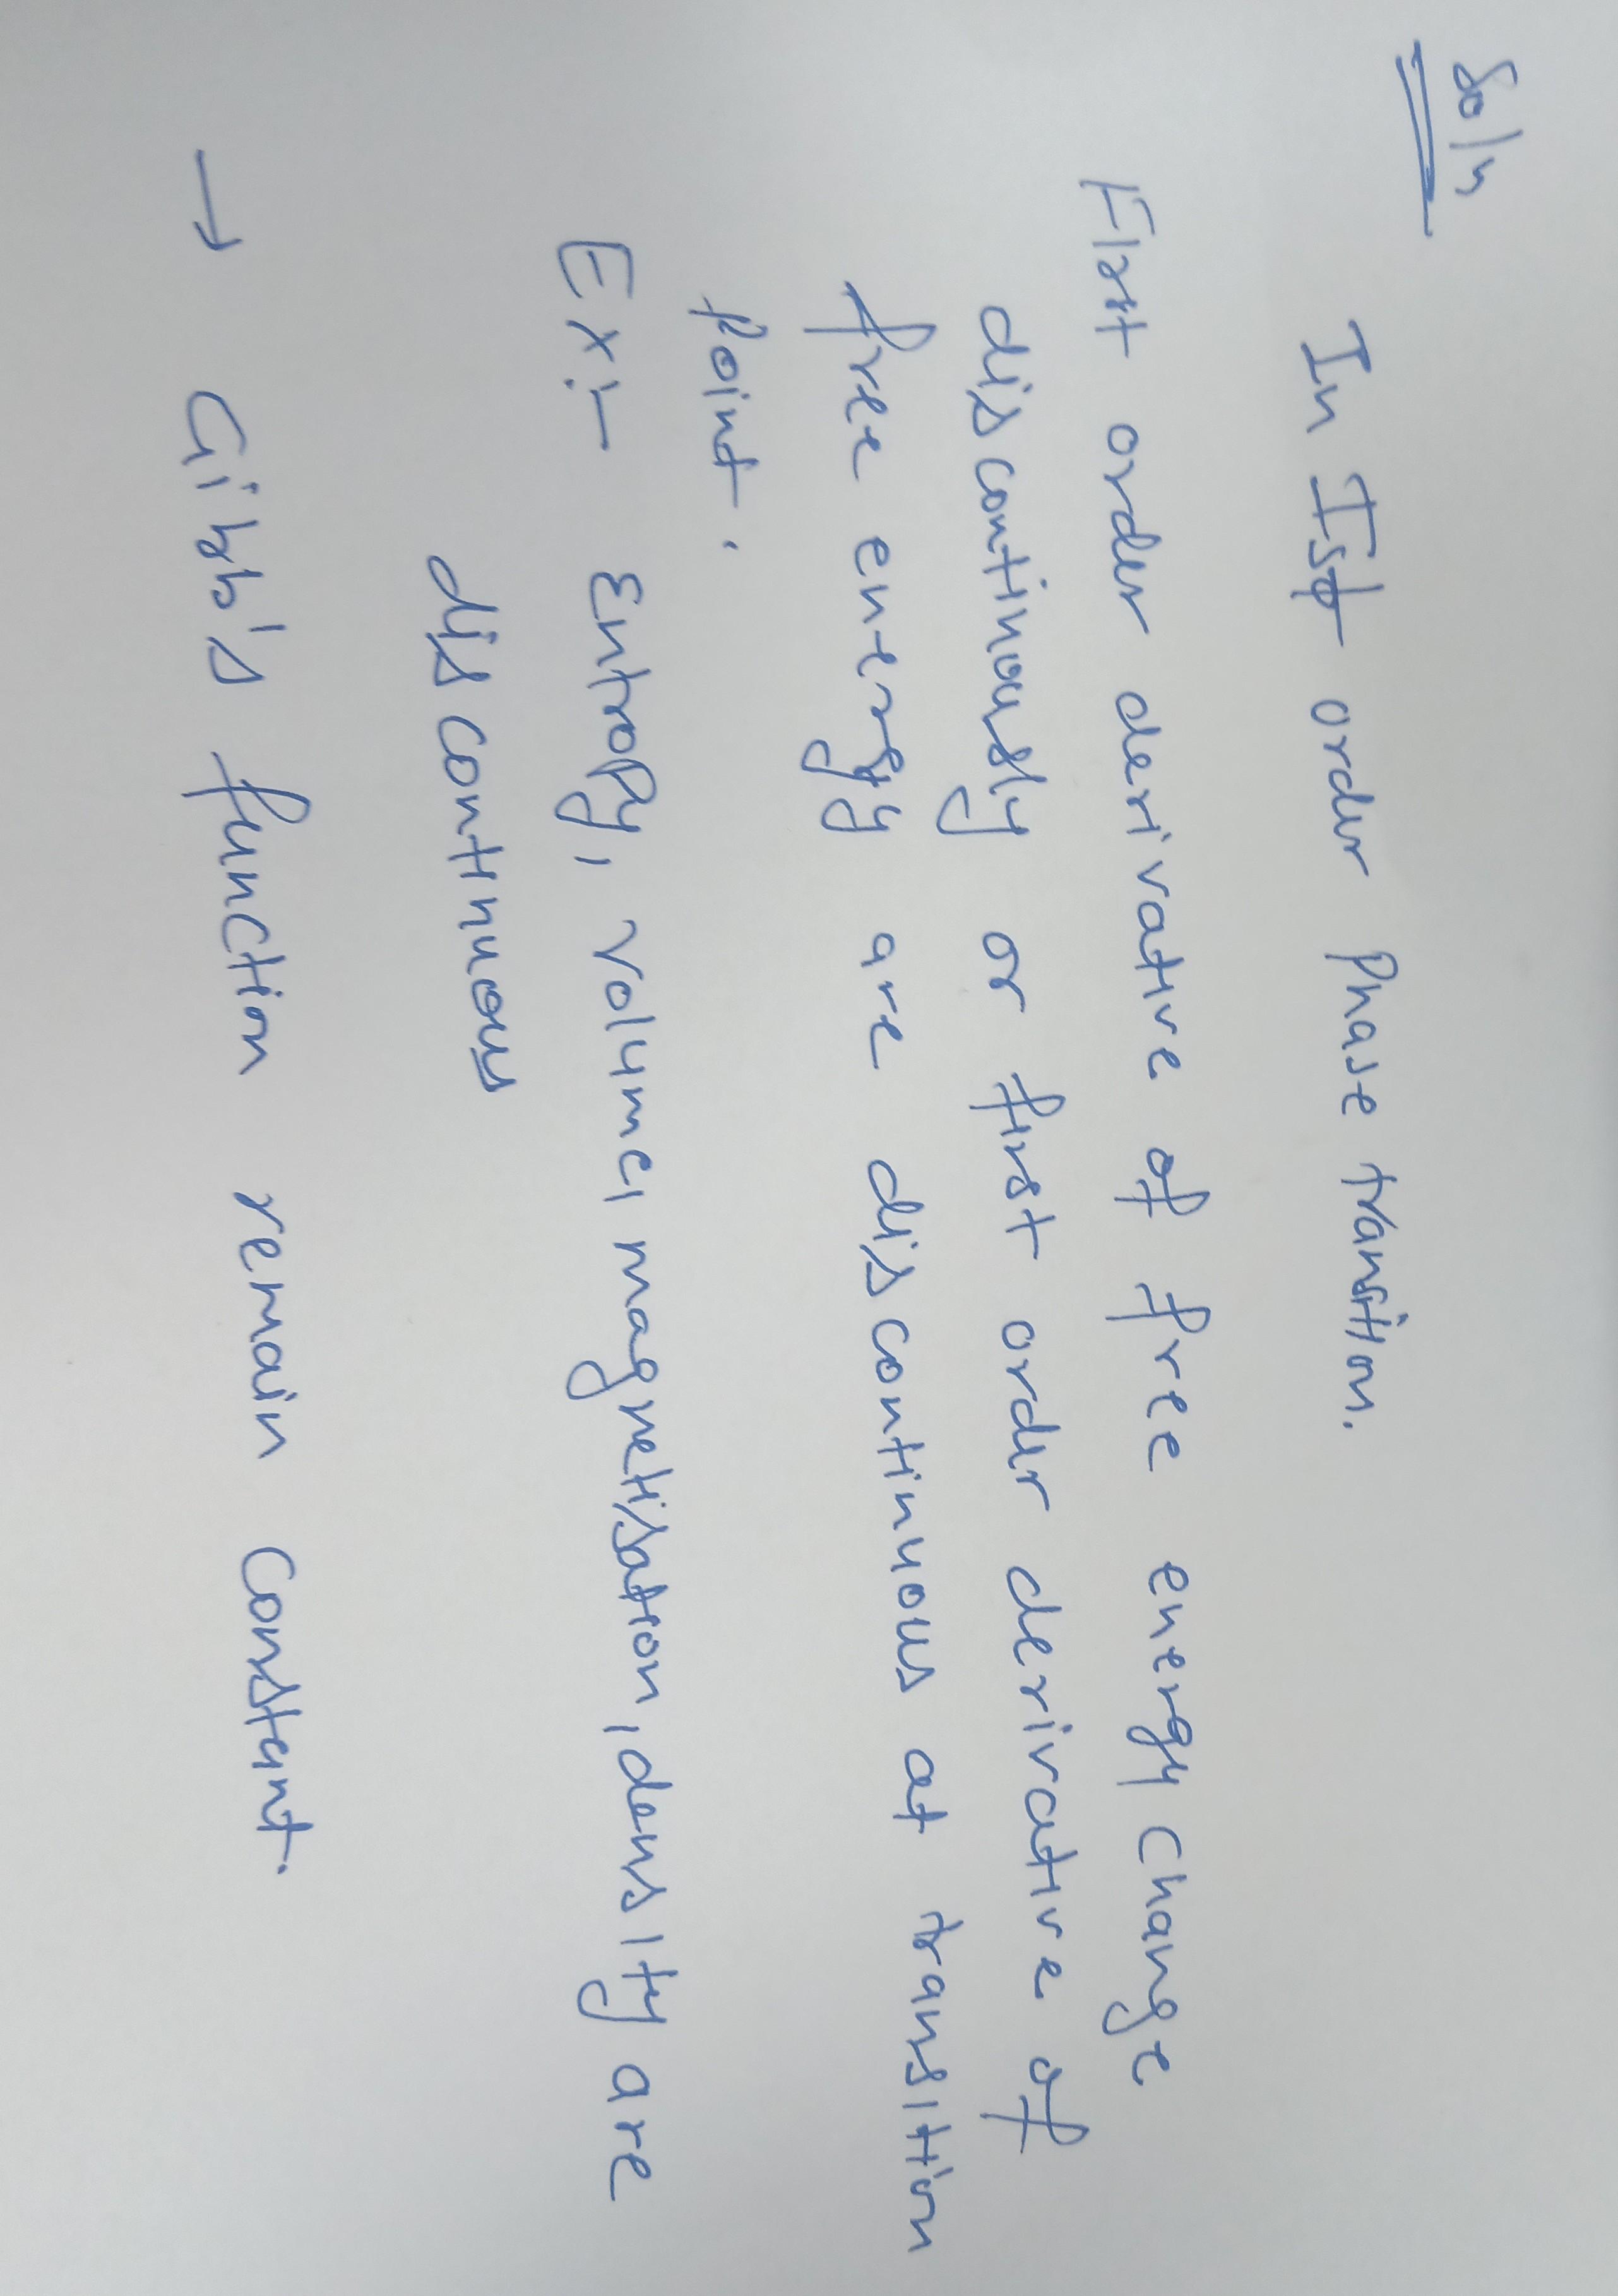 Soln
In Ist order Phase transition.
First order derivative of free energy change
discontinously or first order derivative of
free energy are discontinuous at transition
point.
Ex:- Entropy, volume, magnetisation, density are
discontinuous
→ Gibb's function remain constant.